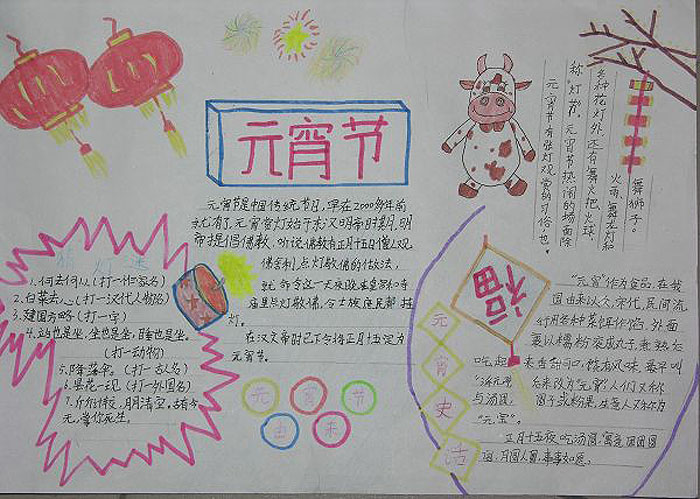 元宵节
元宵节是中国传统节日，早在2000多年前
就有了，元宵赏灯始于东汉明帝时期，明
帝提倡佛教，听说佛教有正月十五日僧人观
佛舍利，点灯敬佛的做法，
就命令这一天夜晚在皇宫和寺
庙里点灯敬佛，令士族庶民都挂
灯。
在汉文帝时已下令将正月十五定为
元宵节。
元宵节
由来
猜灯谜
1.何去何从（打一作家名）
2.白菜去心（打一汉代人物名）
3.建国方略（打一字）
4.站也是坐，坐也是坐，睡也是坐。
（打一动物）
5.降落伞。（打一古人名）
6.昙花一现（打一外国名）
7.斤斤计较，月明清空，古有今
无，掌你死生。
元宵节有张灯观
赏的习俗，也
称“灯节”。元宵节热闹的场面除
各种花灯外，还有舞火把、火球、
火雨，舞龙灯和
舞狮子。
福
元宵史话
“元宵”作为食品，在我
国由来以久，宋代，民间流
行用各种果饵作馅，外面
裹以糯粉突成球子，煮熟后
吃起来香甜可口，饶有风味，最早叫
“浮元子”后来改为“元宵”，人们又称
与汤圆、团子或粉果，生意人又称作为
“元宝”。
正月十五夜吃汤圆，寓意团团圆
圆，月圆人圆，事事如愿。